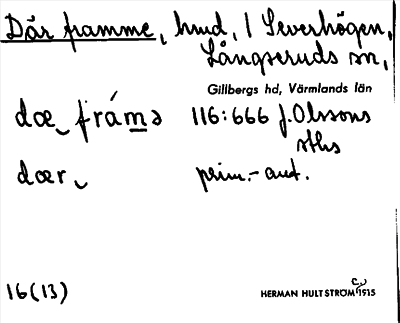 Där framme, hmd, / Severhögen,
Långseruds sn,
Gillbergs hd, Värmlands län
dæ‿ frámə 116:666 J. Olssons
sths
dær‿ prim.-ant.
16(13) HERMAN HULTSTRÖM 1915